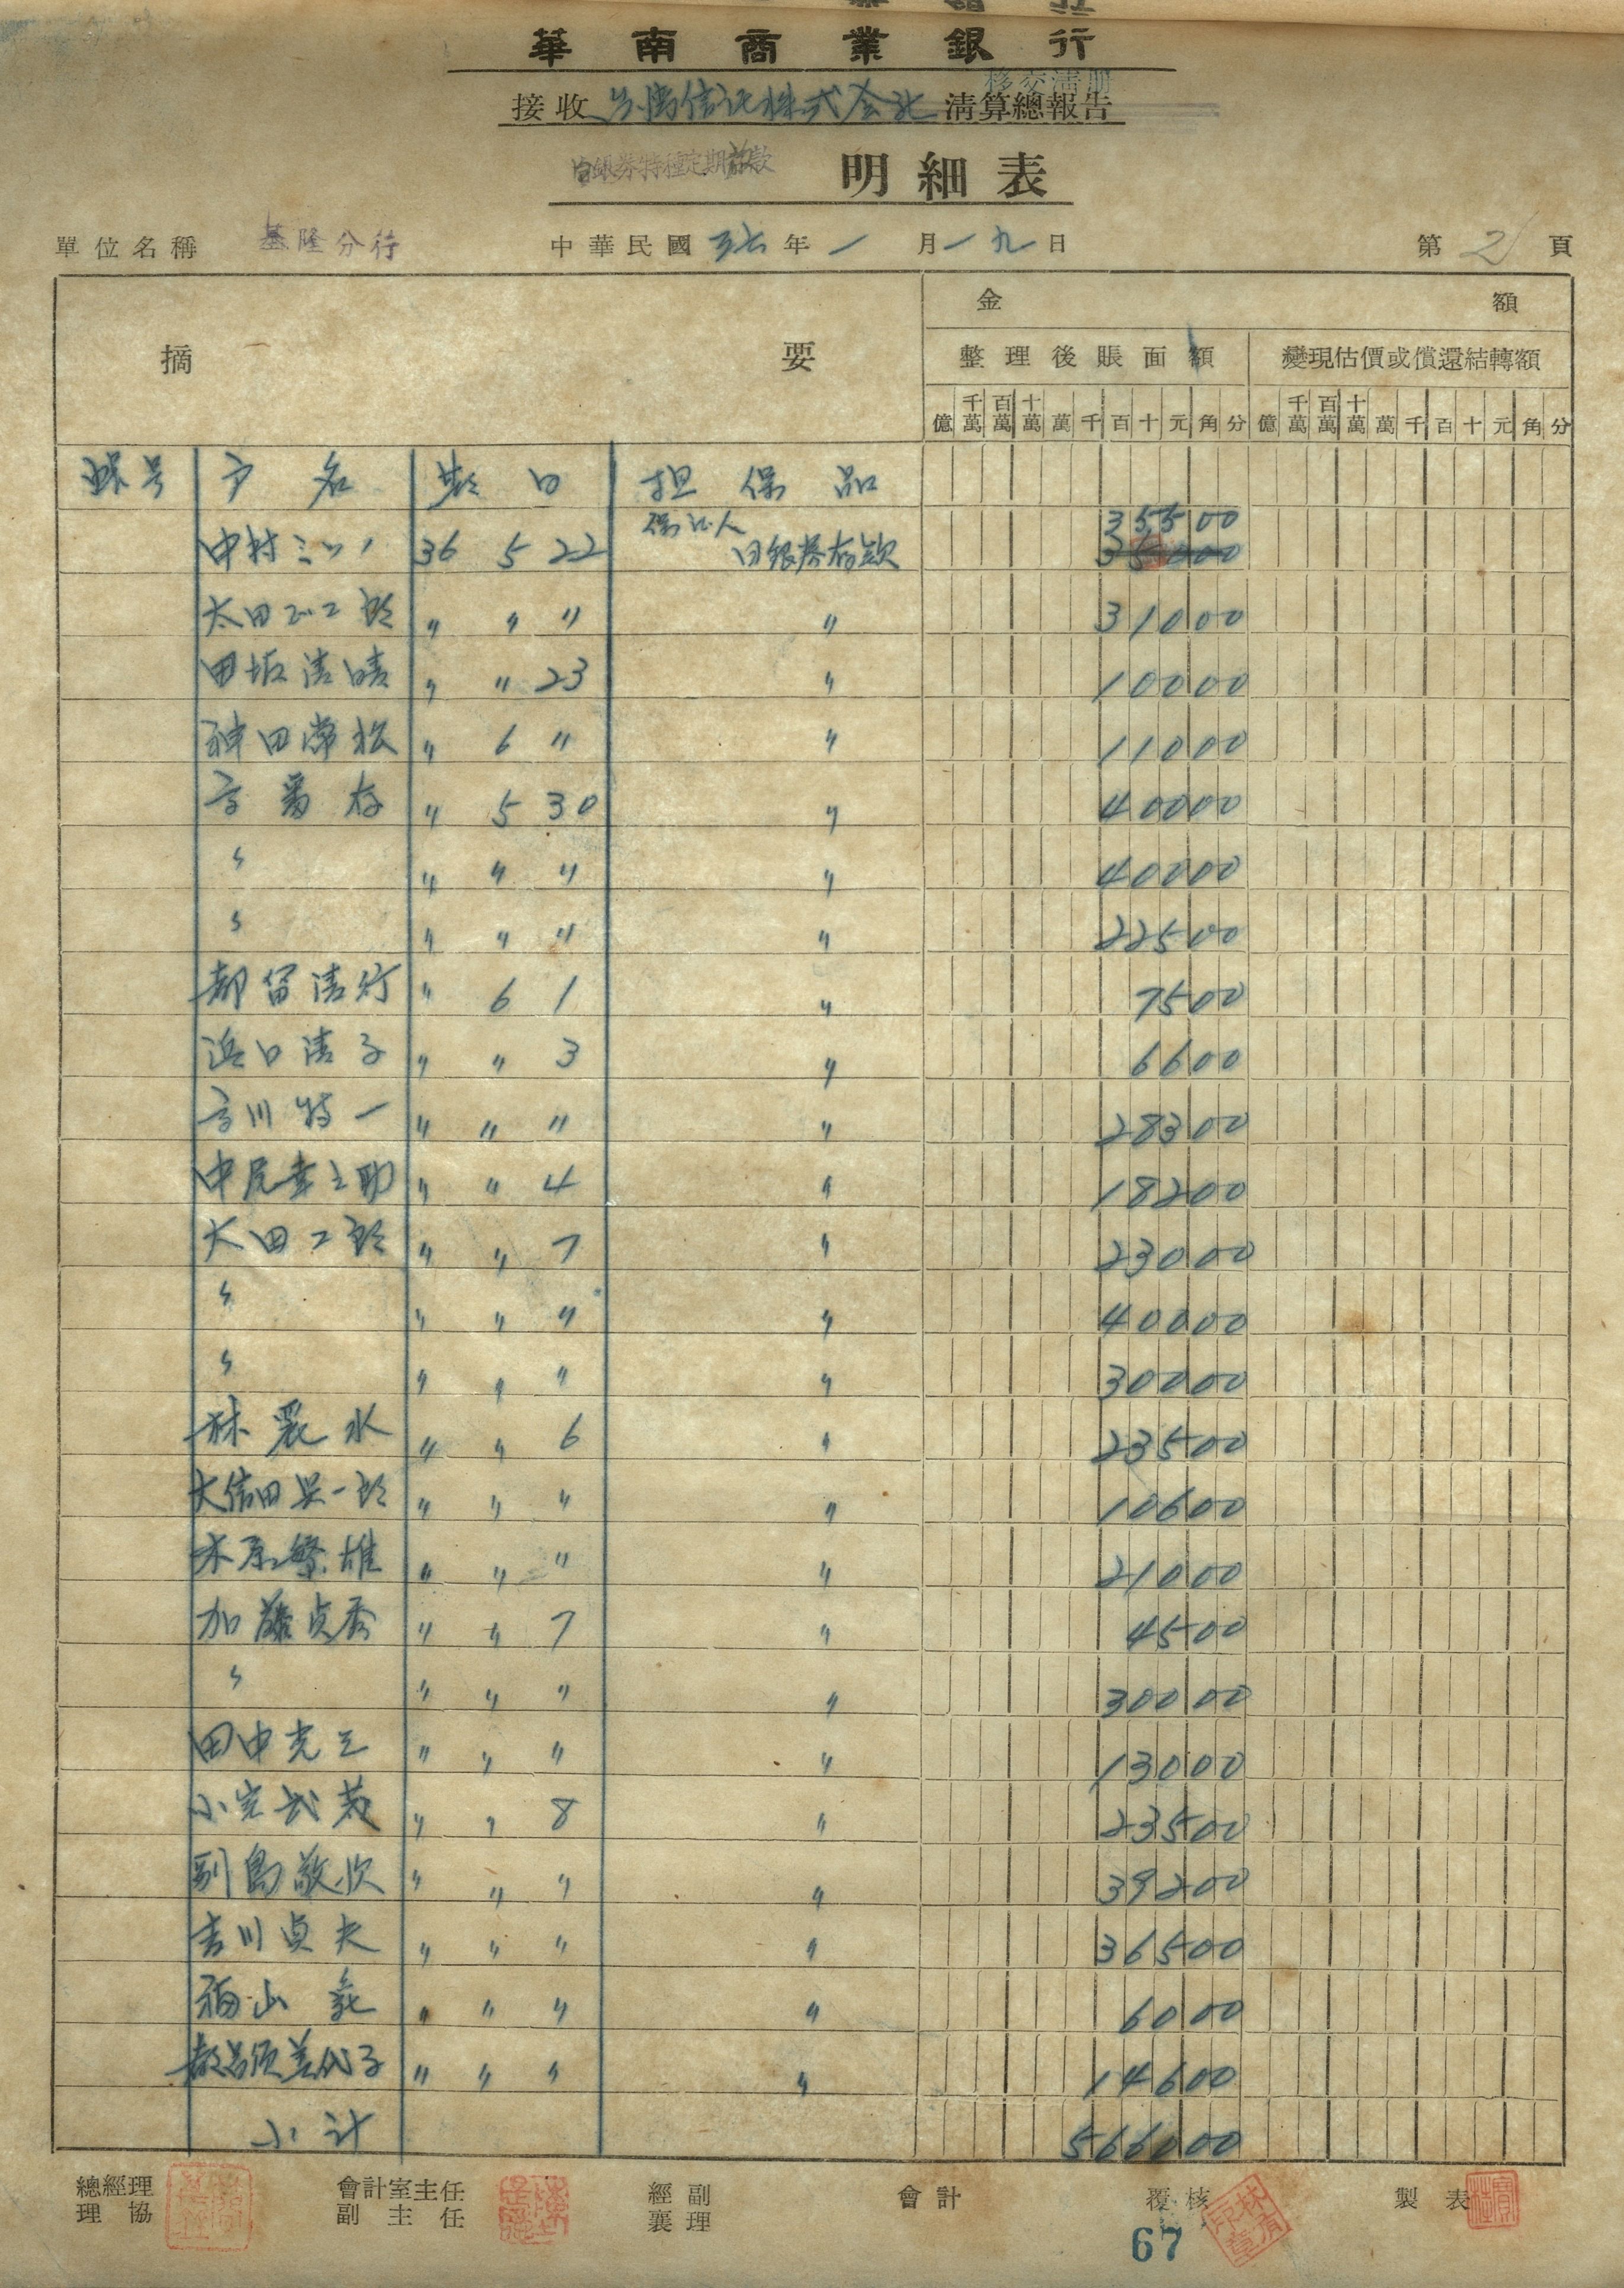 華南商業銀行
移交清册
接收台湾信託株式会社清算總報告
日銀券特種定期放款 明細表
單位名稱 基隆分行 中華民國 三六 年 一 月 一九 日 第 2 頁
摘 要 金 額
整理後賬面額 變現估價或償還結轉額
億 千萬 百萬 十萬 萬 千 百 十 元 角 分 億 千萬 百萬 十萬 萬 千 百 十 元 角 分
户名 担保品
保证人 35500
中村ミツノ 36 5 22 日銀券存款 35000
太田正二郎 〃 〃 〃 〃 31000
田坂清晴 〃 〃 23 〃 10000
神田常松 〃 6 〃 〃 11000
〃 5 30 〃 40000
〃 〃 〃 〃 〃 40000
〃 〃 〃 〃 〃 22500
都留清 〃 6 1 〃 7500
浜口清子 〃 〃 3 〃 6600
川特一 〃 〃 〃 〃 28300
中尾幸之助 〃 〃 4 〃 18200
太田二郎 〃 〃 7 〃 23000
〃 〃 〃 〃 〃 40000
〃 〃 〃 〃 〃 30000
林水 〃 〃 6 〃 23500
大信田一郎 〃 〃 〃 〃 10600
木原繁雄 〃 〃 〃 〃 21000
加藤貞秀 〃 〃 7 〃 4500
〃 〃 〃 〃 〃 30000
田中光三 〃 〃 〃 〃 13000
小武 〃 〃 8 〃 23500
副島敬次 〃 〃 〃 〃 39200
吉川貞夫 〃 〃 〃 〃 36500
福山 〃 〃 〃 〃 6000
美代子 〃 〃 〃 〃 14600
小計 566000
總經理 會計室主任 經副 會計 覆核 製表
理協 副主任 襄理
67